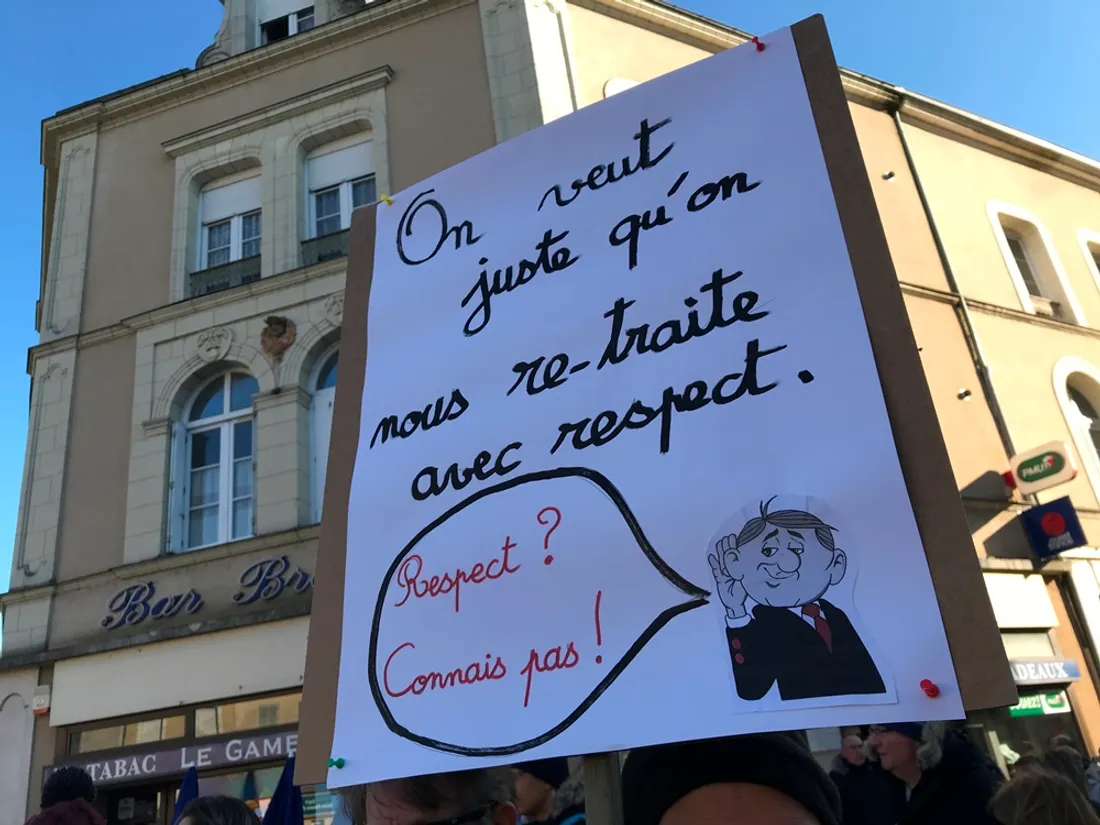 On veut
juste qu'on
nous re-traite
avec respect.
Respect ?
Connais pas !
Bar
TABAC LE GAME
PMU